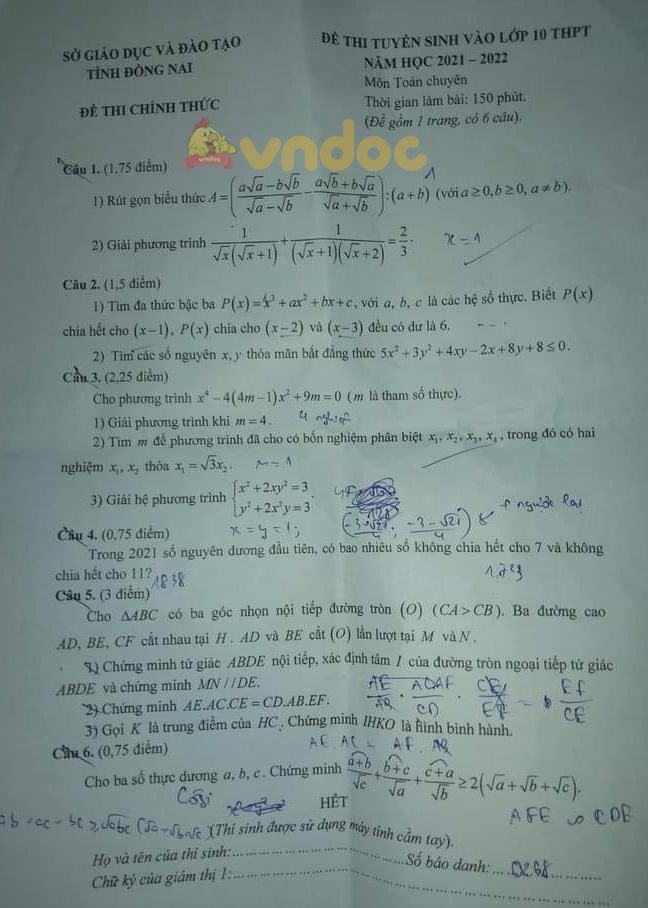 SỞ GIÁO DỤC VÀ ĐÀO TẠO
TỈNH ĐỒNG NAI
ĐỀ THI CHÍNH THỨC
ĐỀ THI TUYỂN SINH VÀO LỚP 10 THPT
NĂM HỌC 2021 – 2022
Môn Toán chuyên
Thời gian làm bài: 150 phút.
(Đề gồm 1 trang, có 6 câu).
vndoc
Câu 1. (1,75 điểm)
1) Rút gọn biểu thức A = ((a√a − b√b)/(√a − √b) − (a√b + b√a)/(√a + √b)) : (a + b) (với a ≥ 0, b ≥ 0, a ≠ b). 1
2) Giải phương trình 1/(√x(√x + 1)) + 1/((√x + 1)(√x + 2)) = 2/3. x = 1
Câu 2. (1,5 điểm)
1) Tìm đa thức bậc ba P(x) = x³ + ax² + bx + c, với a, b, c là các hệ số thực. Biết P(x)
chia hết cho (x − 1), P(x) chia cho (x − 2) và (x − 3) đều có dư là 6.
2) Tìm các số nguyên x, y thỏa mãn bất đẳng thức 5x² + 3y² + 4xy − 2x + 8y + 8 ≤ 0.
Câu 3. (2,25 điểm)
Cho phương trình x⁴ − 4(4m − 1)x² + 9m = 0 (m là tham số thực).
1) Giải phương trình khi m = 4. 4 nghiệm
2) Tìm m để phương trình đã cho có bốn nghiệm phân biệt x₁, x₂, x₃, x₄, trong đó có hai
nghiệm x₁, x₂ thỏa x₁ = √3x₂. m = 1
3) Giải hệ phương trình { x² + 2xy² = 3
y² + 2x²y = 3.
x = y = 1; (-3+√21)/4; (-3-√21)/4 & ngược lại
Câu 4. (0,75 điểm)
Trong 2021 số nguyên dương đầu tiên, có bao nhiêu số không chia hết cho 7 và không
chia hết cho 11? 1838
Câu 5. (3 điểm)
Cho ΔABC có ba góc nhọn nội tiếp đường tròn (O) (CA > CB). Ba đường cao
AD, BE, CF cắt nhau tại H. AD và BE cắt (O) lần lượt tại M và N.
1) Chứng minh tứ giác ABDE nội tiếp, xác định tâm I của đường tròn ngoại tiếp tứ giác
ABDE và chứng minh MN // DE.
2) Chứng minh AE.AC.CE = CD.AB.EF.
3) Gọi K là trung điểm của HC. Chứng minh IHKO là hình bình hành.
AE . AC = AF . AB
Câu 6. (0,75 điểm)
Cho ba số thực dương a, b, c. Chứng minh (a+b)/√c + (b+c)/√a + (c+a)/√b ≥ 2(√a + √b + √c).
Côsi
HẾT
AFE ∽ CDE
(Thí sinh được sử dụng máy tính cầm tay).
Họ và tên của thí sinh: Số báo danh: 0268
Chữ ký của giám thị 1: